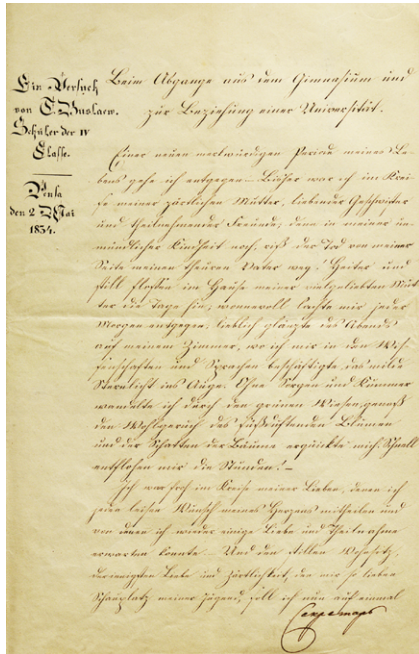 Ein Versuch
von T. Buslaew.
Schüler der IV
Classe.
Pensa
den 2 Mai
1834.
Beim Abgange aus dem Gimnasium und
zur Beziehung einer Universität.
Einer neuen merkwürdigen Periode meines Le-
bens gehe ich entgegen – Bisher war ich im Krei-
se meiner zärtlichen Mutter, liebender Geschwister
und theilnehmender Freunde, denn in meiner un-
mündlicher Kindheit noch, riß der Tod von meiner
Seite meinen theuren Vater weg. Heiter und
still flossen im Hause meiner vielgeliebten Mut-
ter die Tage hin, wonnevoll lachte mir jeder
Morgen entgegen, lieblich glänzte des Abends
auf meinem Zimmer, wo ich mich in den Wiß-
enschaften und Sprachen beschäftigte, das milde
Sternlicht ins Auge. Ohne Sorgen und Kummer
wandelte ich durch den grünen Wiesen, genoß
den Wohlgeruch des süßduftenden Blumen
und der Schatten der Bäume erquickte mich. Schnell
entflohen mir die Stunden! –
Ich war froh im Kreise meiner Lieben, denen ich
jeden leisen Wunsch meines Herzens mittheilen und
von denen ich wieder einige Liebe und Theilnahme
erwarten konnte – Und den stillen Wohnsitz,
der innigsten Liebe und Zärtlichkeit, den mir so lieben
Schauplatz meiner Jugend, soll ich nun auf einmal